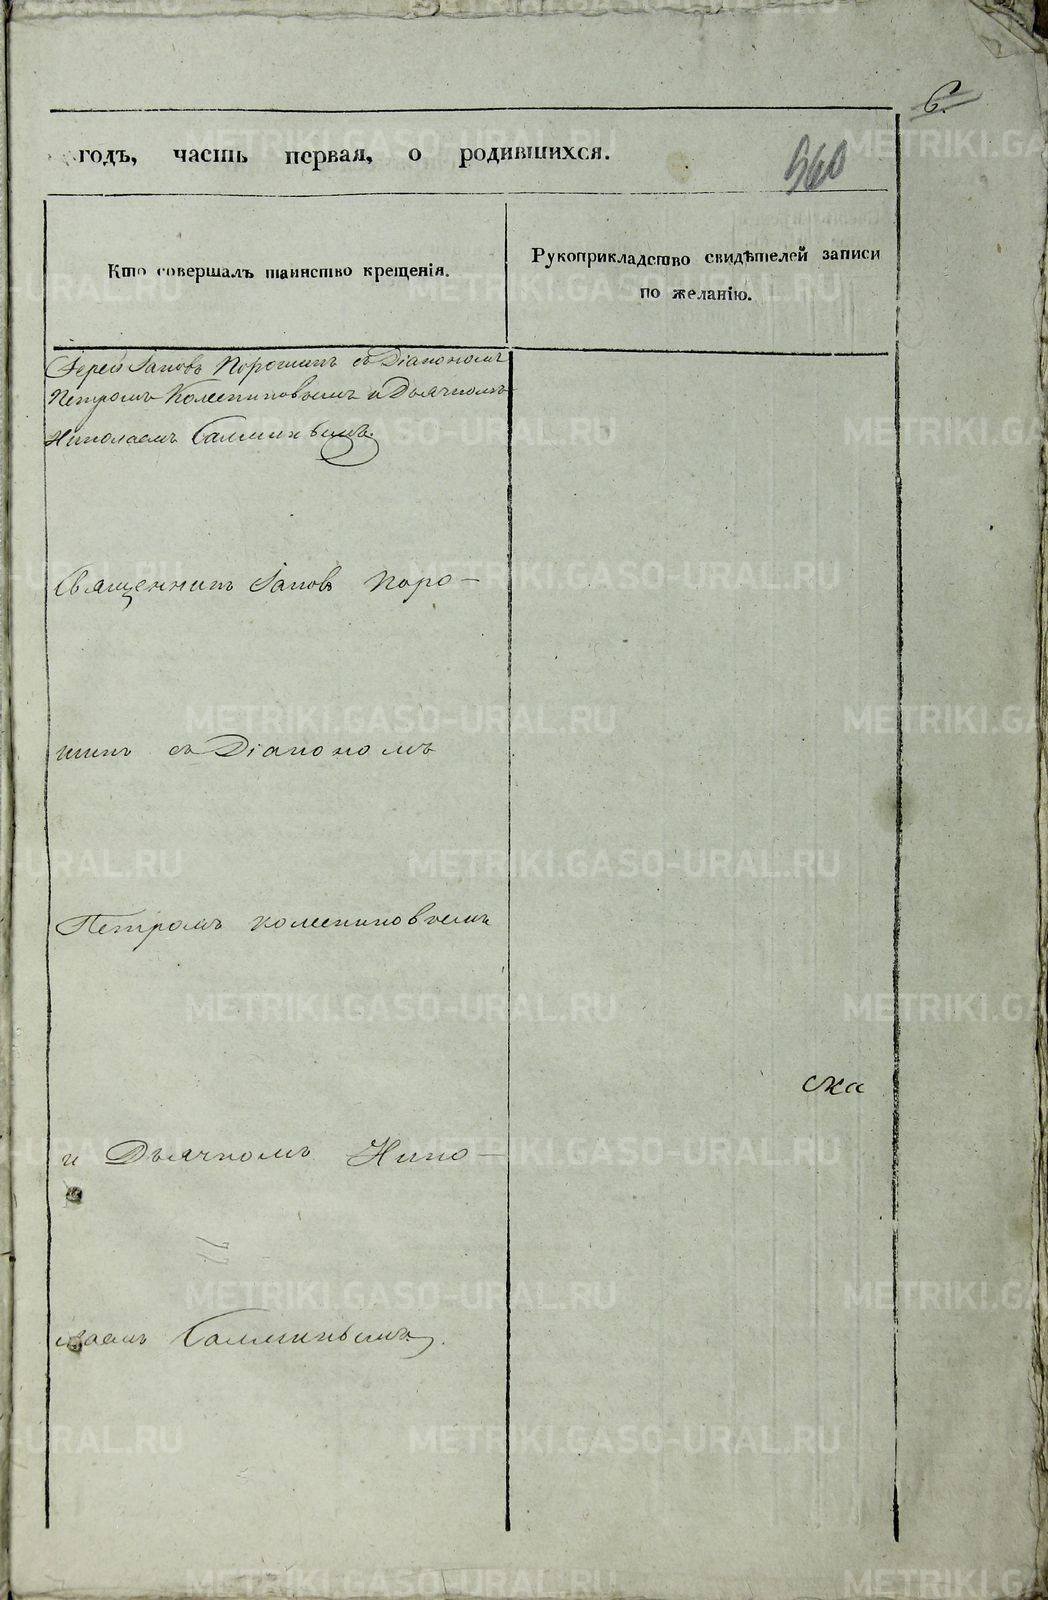 6.
годъ, часть первая, о родившихся.
560
Кто совершалъ таинство крещенія.
Рукоприкладство свидѣтелей записи
по желанію.
Іерей Іаковъ Порошинъ съ Діакономъ
Петромъ Колесниковымъ и Дьячкомъ
Николаемъ
Священникъ Іаковъ Поро-
шинъ съ Діакономъ
Петромъ Колесниковымъ
и Дьячкомъ Нико-
лаемъ
ска
METRIKI.GASO-URAL.RU